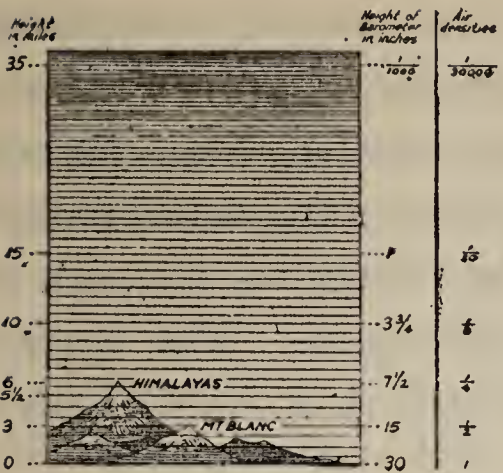 Height
in miles
Height of
Barometer
in inches
Air
densities
35 1/1000 1/30000
15 1
10 3 3/4 1/8
6 7 1/2 1/4
5 1/2
HIMALAYAS
3 15 1/2
MT BLANC
0 30 1